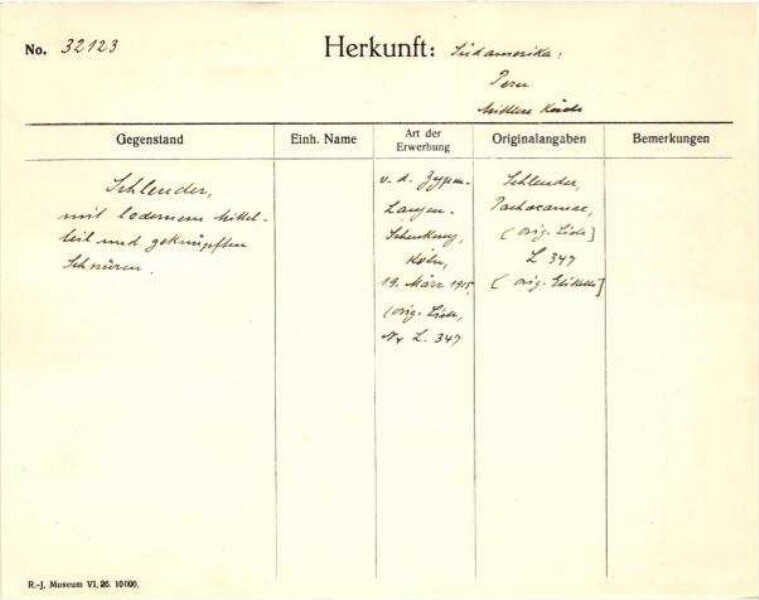 No. 32123
Herkunft: Südamerika:
Peru
Mittlere Küste
Gegenstand
Einh. Name
Art der
Erwerbung
Originalangaben
Bemerkungen
Schleuder,
mit ledernem Mittel-
teil und geknüpften
Schnüren.
v. d. Zypen-
Langen-
Schenkung,
Köln,
19. März 1915
(orig. Liste,
Nr L. 347
Schleuder,
Pachacamac,
(orig. Liste]
L 347
[orig. Etikette]
R.-J. Museum VI. 26. 10000.